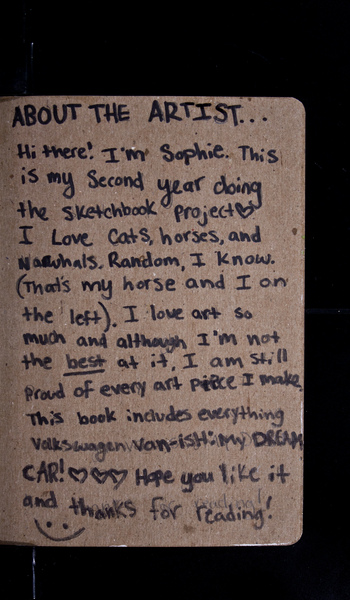 ABOUT THE ARTIST...
Hi there! I'm Sophie. This
is my Second year doing
the sketchbook project♡
I Love Cats, horses, and
Narwhals. Random, I know.
(That's my horse and I on
the left). I love art so
much and although I'm not
the best at it, I am still
proud of every art piece I make.
This book includes everything
Volkswagen van-ish: My DREAM
CAR! ♡♡♡ Hope you like it
and thanks for reading!